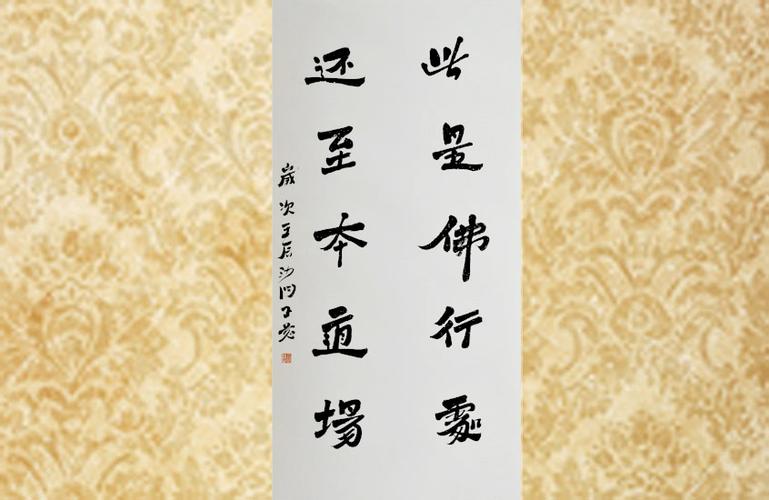 此是佛行處
还至本道場
歲次壬辰沙門了愚